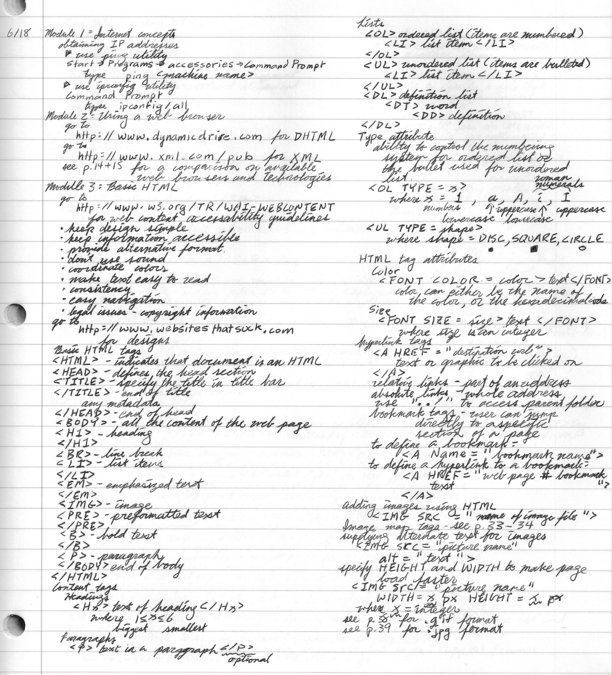 6/18 Module 1 = Internet concepts
obtaining IP addresses
use ping utility
Start → Programs → accessories → Command Prompt
type ping <machine name>
use ipconfig utility
Command Prompt
type ipconfig/all
Module 2 = Using a web browser
go to
http://www.dynamicdrive.com for DHTML
go to
http://www.xml.com/pub for XML
see p. 14+15 for a comparison on available
web browsers and technologies
Module 3 = Basic HTML
go to
http://www.w3.org/TR/WAI-WEBCONTENT
for web content accessability guidelines
• keep design simple
• keep information accessible
• provide alternative format
• don't use sound
• coordinate colors
• make text easy to read
• consistency
• easy navigation
• legal issues - copyright information
go to
http://www.websitesthatsuck.com
for designs
Basic HTML Tags
<HTML> - indicates that document is an HTML
<HEAD> - defines the head section
<TITLE> - specify the title in title bar
</TITLE> - end of title
any metadata
</HEAD> - end of head
<BODY> - all the content of the web page
<H1> - heading
</H1>
<BR> - line break
<LI> - list items
</LI>
<EM> - emphasized text
</EM>
<IMG> - image
<PRE> - preformatted text
</PRE>
<B> - bold text
</B>
<P> - paragraph
</BODY> end of body
</HTML>
Content tags
Headings
<Hx> text of heading </Hx>
where 1≤x≤6
biggest smallest
Paragraphs
<P> text in a paragraph </P>
optional
Lists
<OL> ordered list (items are numbered)
<LI> list item </LI>
</OL>
<UL> unordered list (items are bulleted)
<LI> list item </LI>
</UL>
<DL> definition list
<DT> word
<DD> definition
</DL>
Type attribute
ability to control the numbering
system for ordered list or
the bullet used for unordered
list
roman
numerals
<OL TYPE = x>
where x = 1, a, A, i, I
numbers uppercase uppercase
lowercase lowercase
<UL TYPE = shape>
where shape = DISC, SQUARE, CIRCLE
HTML tag attributes
Color
<FONT COLOR = color> text </FONT>
color can either by the name of
the color, or the hexadecimal code
Size
<FONT SIZE = size> text </FONT>
where size is an integer
hyperlink tags
<A HREF = "destination url">
text or graphic to be clicked on
</A>
relative links - part of an address
absolute links - whole address
use "../" to access parent folder
bookmark tags - user can jump
directly to a specific
section of a page
to define a bookmark =
<A Name = "bookmark name">
to define a hyperlink to a bookmark =
<A HREF = "web page # bookmark
text ">
</A>
adding images using HTML
<IMG SRC = "name of image file">
Image map tags - see p. 33-34
supplying alternate text for images
<IMG SRC = "picture name"
alt = "text">
specify HEIGHT and WIDTH to make page
load faster
<IMG SRC = "picture name"
WIDTH = x px HEIGHT = x px
where x = integer
see p. 38 for .gif format
see p. 39 for .jpg format